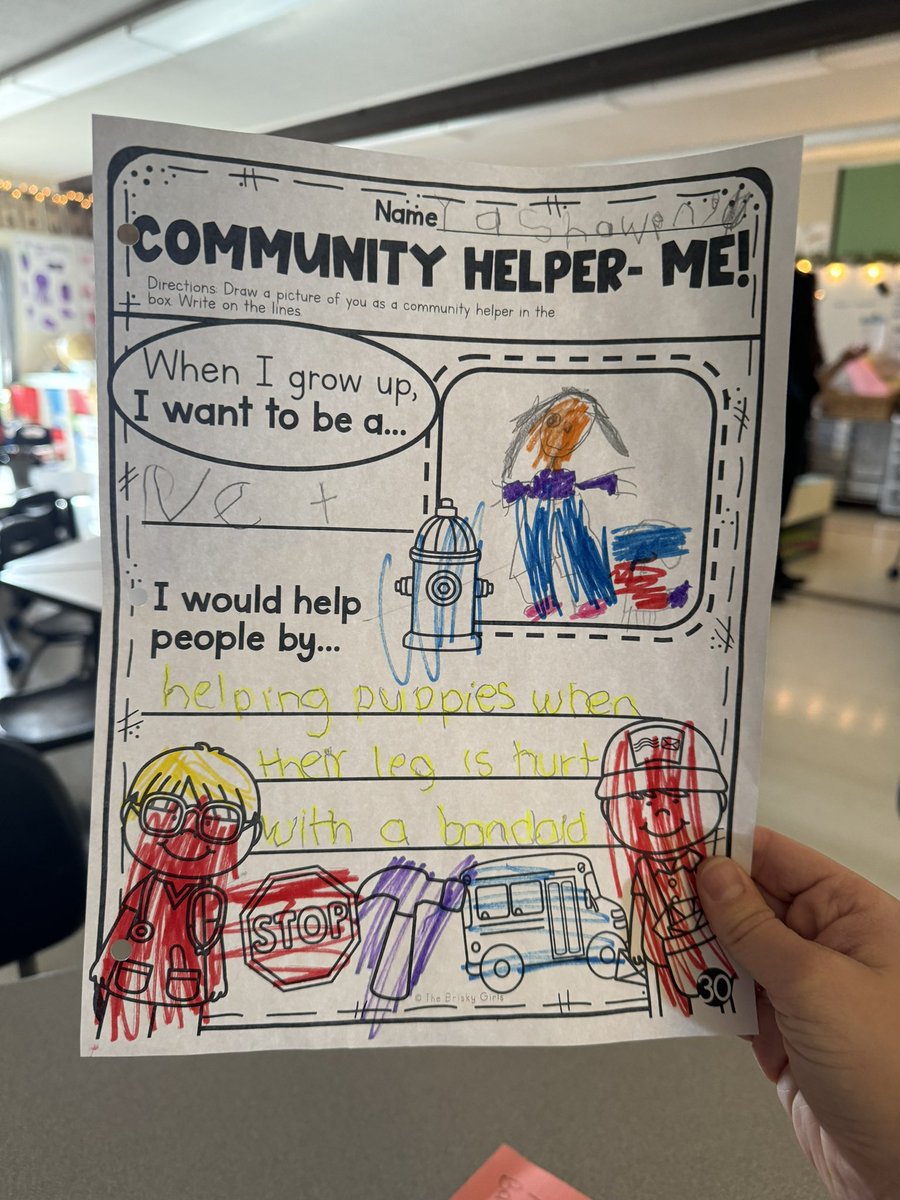 Name
COMMUNITY HELPER- ME!
Directions: Draw a picture of you as a community helper in the
box. Write on the lines.
When I grow up,
I want to be a...
Vet
I would help
people by...
helping puppies when
their leg is hurt
with a bandaid
STOP
© The Brisky Girls
30